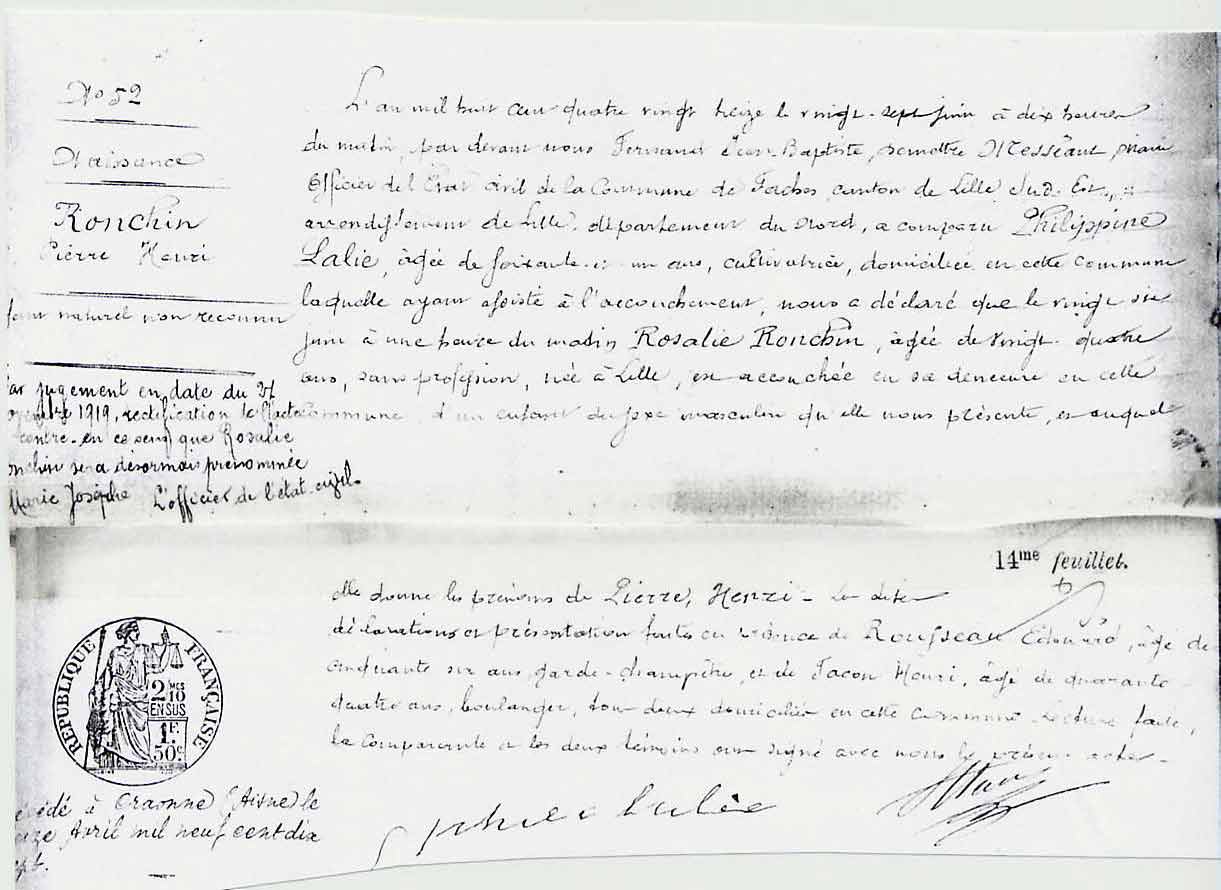 No 52
Naissance
Ronchin
Pierre Henri
naturel non reconnu
jugement en date du
1919, rectification de l'acte
contre en ce sens que Rosalie
sera désormais prénommée
Marie Josèphe L'officier de l'état-civil.
L'an mil huit cent quatre vingt treize le vingt-sept juin à dix heures
du matin, par devant nous Jean-Baptiste, maire
Officier de l'Etat civil de la Commune de Faches canton de Lille Sud-Est,
arrondissement de Lille, département du Nord, a comparu Philippine
Lalie, âgée de soixante et un ans, cultivatrice, domiciliée en cette commune
laquelle ayant assisté à l'accouchement, nous a déclaré que le vingt six
juin à une heure du matin Rosalie Ronchin, âgée de vingt-quatre
ans, sans profession, née à Lille, est accouchée en sa demeure en cette
Commune, d'un enfant du sexe masculin qu'elle nous présente, et auquel
14me feuillet.
elle donne les prénoms de Pierre, Henri - Les dites
déclarations et présentation faites en présence de Rousseau Edouard, âgé de
cinquante six ans, garde-champêtre, et de Facon Henri, âgé de quarante-
quatre ans, boulanger, tous deux domiciliés en cette commune. Lecture faite,
la comparante et les deux témoins ont signé avec nous le présent acte.
RÉPUBLIQUE FRANÇAISE
2 MES
10
EN SUS
1F.
50c
à Craonne (Aisne) le
Avril mil neuf cent dix